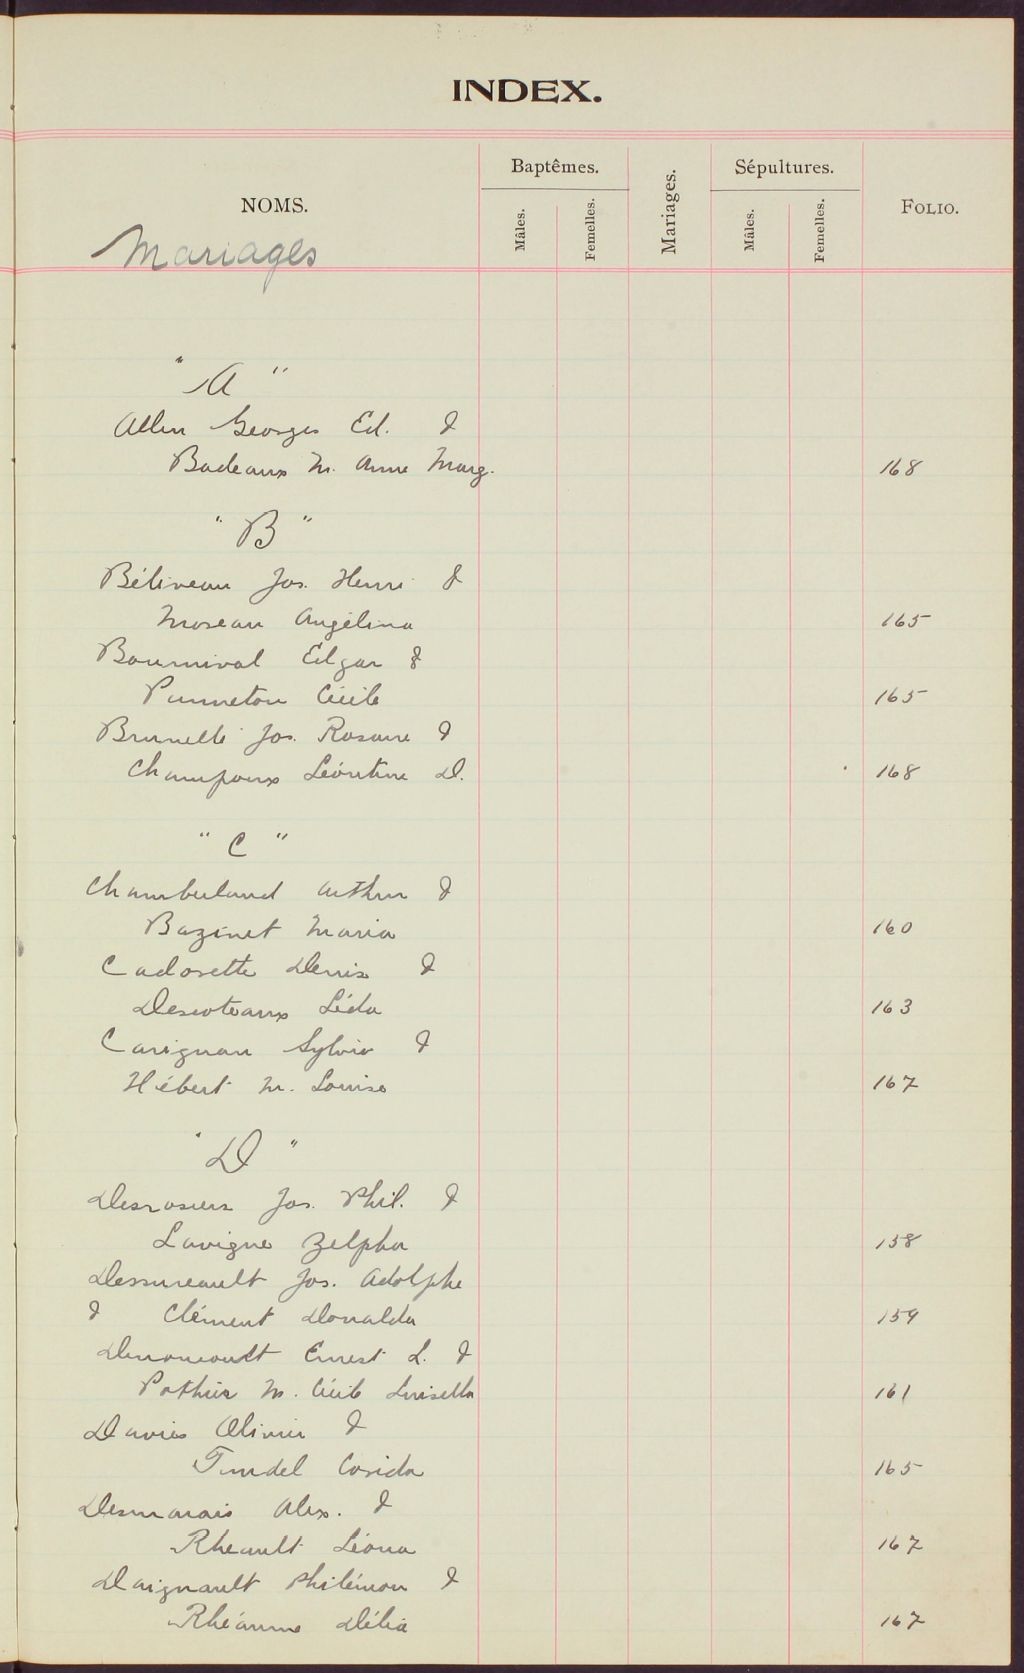 INDEX.
NOMS.
Baptêmes.
Mâles.
Femelles.
Mariages.
Sépultures.
Mâles.
Femelles.
FOLIO.
Mariages
"A"
Allen Georges Ed. &
Badeaux M. Anne Marg. 168
"B"
Béliveau Jos. Henri &
Moreau Angélina 165
Bournival Edgar &
Panneton Cécile 165
Brunelle Jos. Rosaire &
Champoux Léontine D. 168
"C"
Chamberland Arthur &
Bazinet Maria 160
Cadorette Denis &
Descoteaux Léda 163
Carignan Sylvio &
Hébert M. Louise 167
"D"
Desrosiers Jos. Phil. &
Lavigne Zelpha 158
Dessureault Jos. Adolphe
& Clément Donalda 159
Denoncourt Ernest L. &
Pothier M. Cécile Luisella 161
Davies Olivier &
Trudel Corida 165
Desmarais Alex. &
Rheault Léona 167
Daignault Philémon &
Rhéaume Délia 167